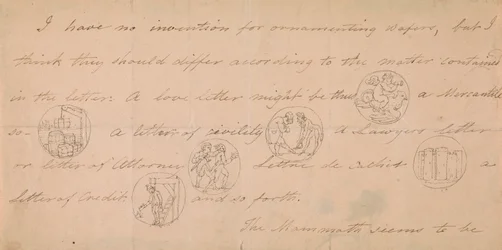 I have no invention for ornamenting wafers, but I
think they should differ according to the matter contained
in the letter. A love letter might be thus a Mercantile
so A letter of civility A Lawyers letter
or letter of Attorney Lettre de Cachet a
Letter of Credit and so forth.
The Mammoth seems to be